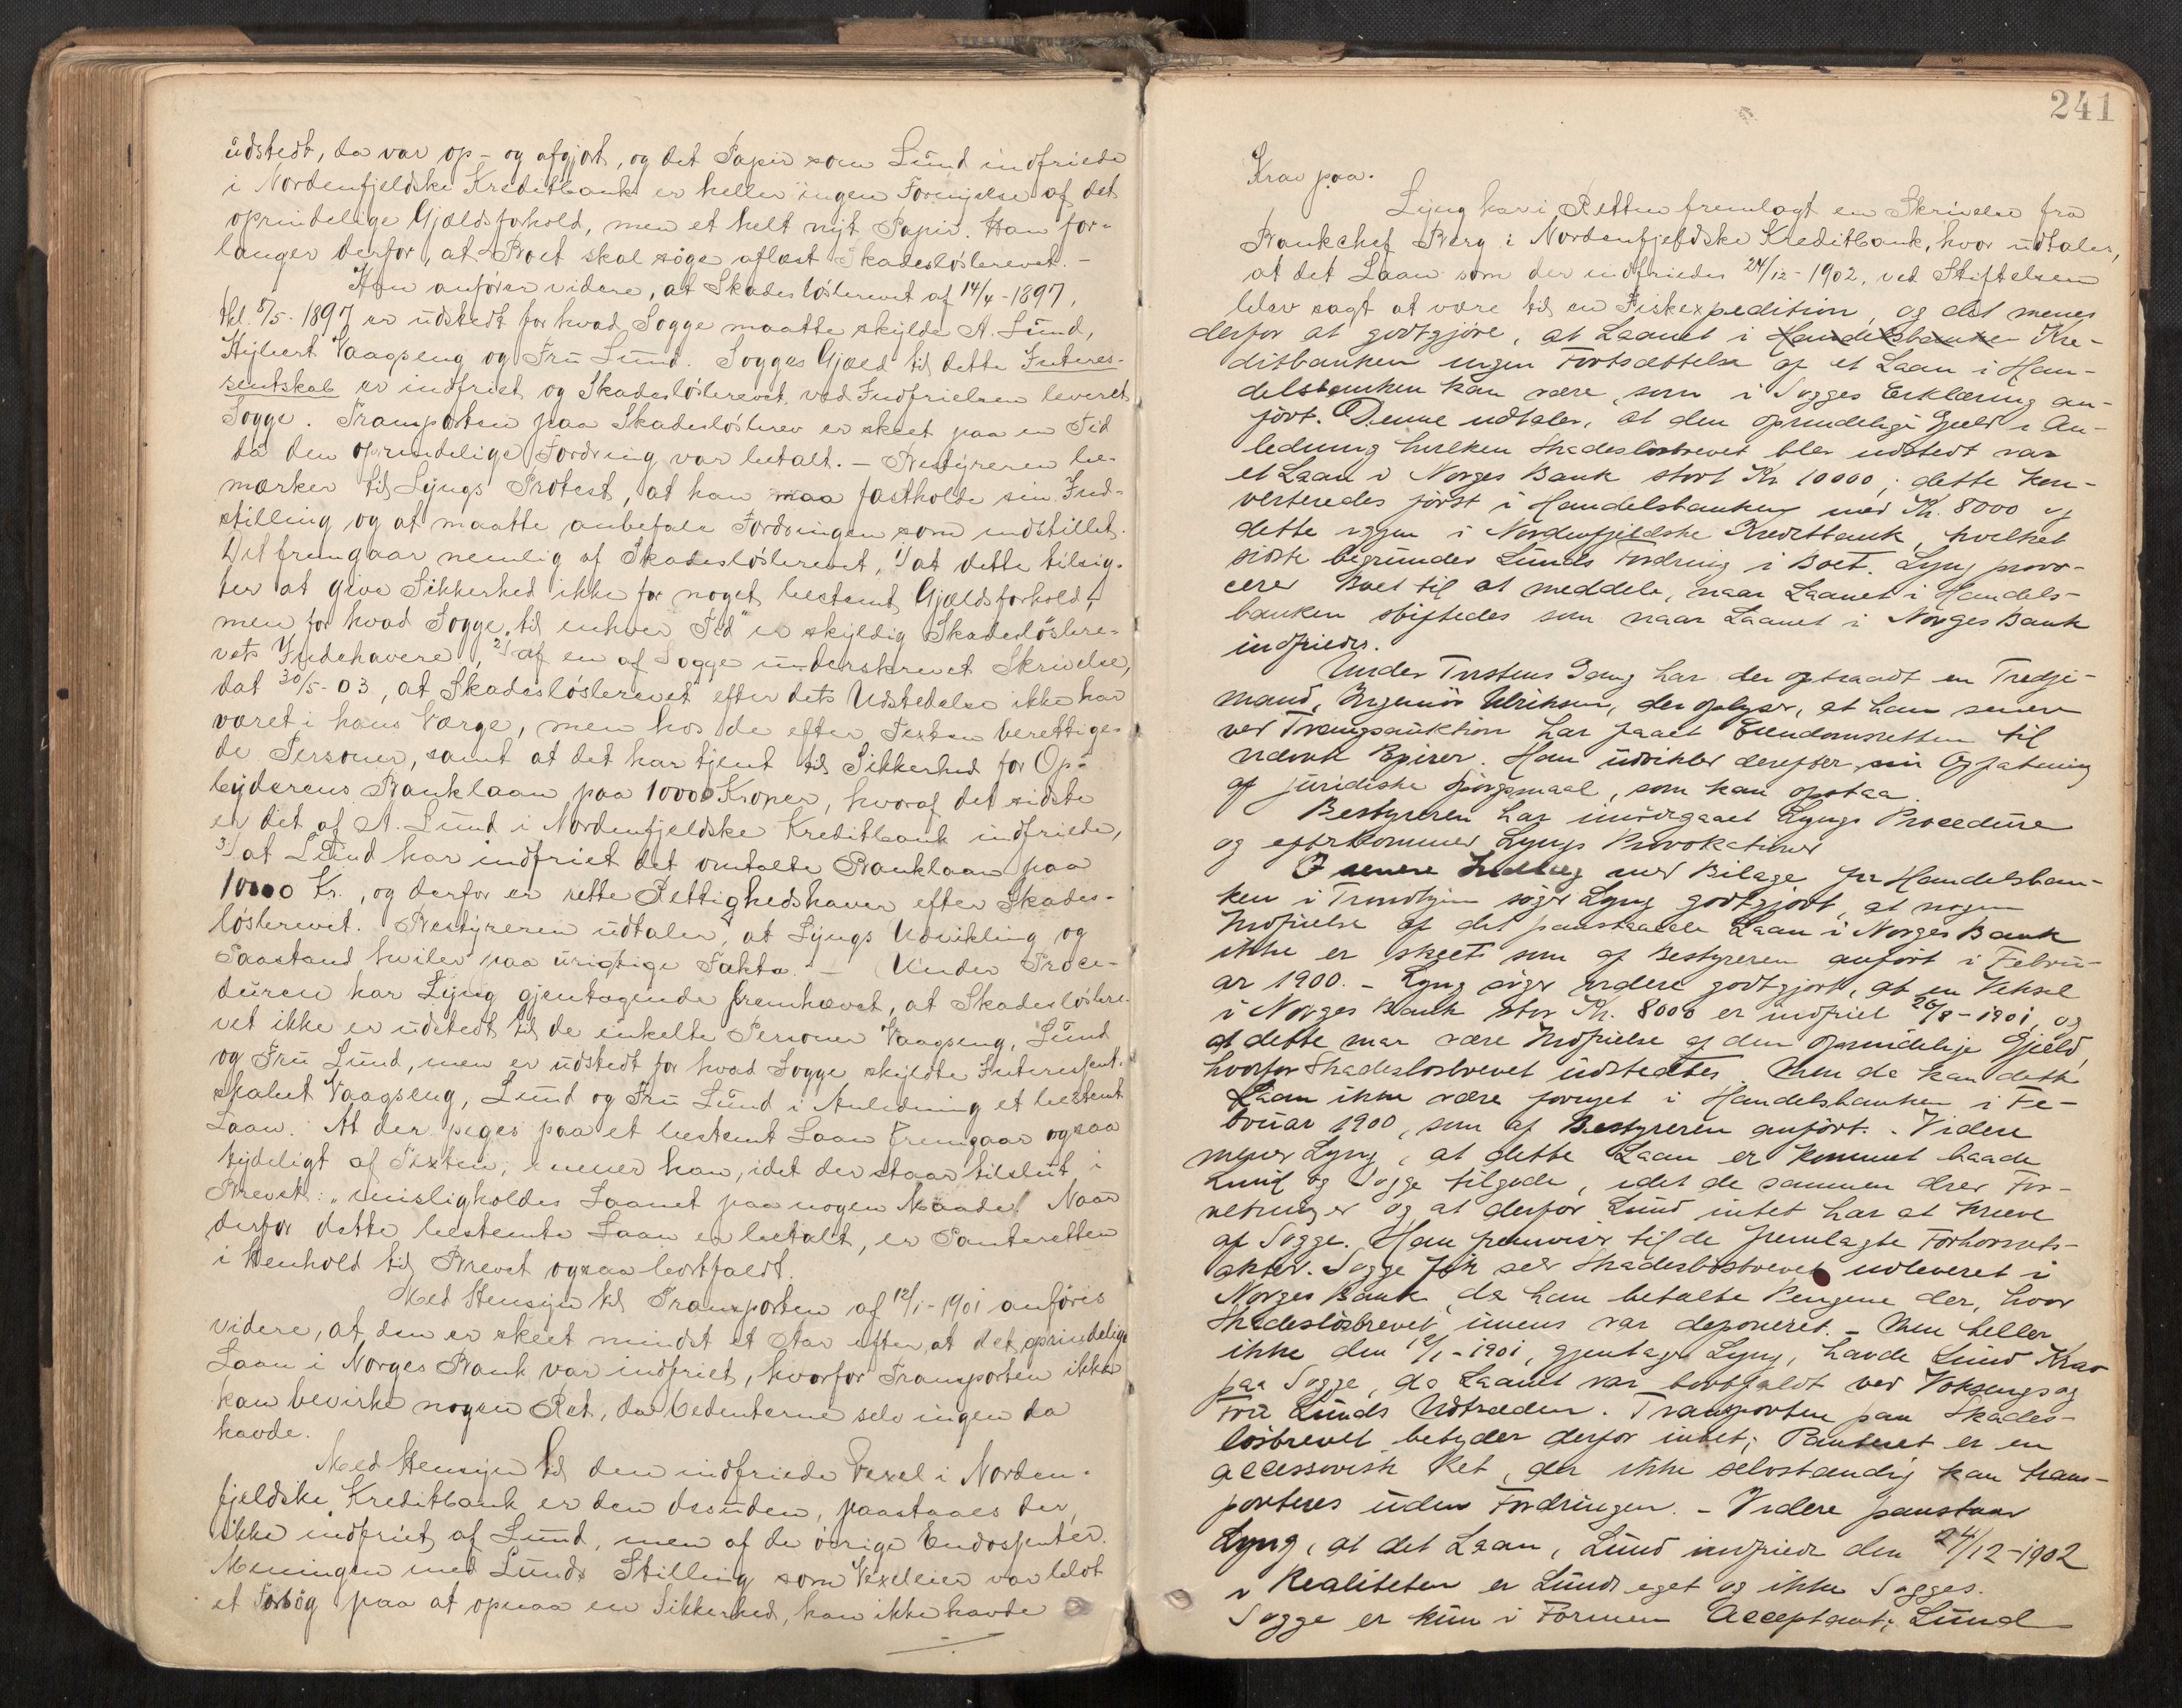 udstedt, da var op- og afgjort, og det Papir som Lund indfriede
i Nordenfjeldske Kreditbank er heller ingen Fornyelse af det
oprindelige Gjældsforhold, men et helt nyt Papir. Han for-
langer derfor, at Boet skal søge aflæst Skadesløsbrevet. -
Han anfører videre, at Skadesløsbrevet af 14/4-1897,
thl. 5/5-1897 er udstedt for hvad Sogge maatte skylde A. Lund,
Hybert Vaagseng og Fru Lund. Sogges Gjæld til dette Interes-
sentskab er indfriet og Skadesløsbrevet ved Indfrielsen leveret
Sogge. Transporten paa Skadesløsbrev er skeet paa en Tid
da den oprindelige Fordring var betalt. - Bestyreren be-
mærker til Lyngs Protest, at han maa fastholde sin Ind-
stilling og at maatte anbefale Fordringen som indstillet.
Det fremgaar nemlig af Skadesløsbrevet, 1) at dette tilsig-
ter at give Sikkerhed ikke for noget bestemt Gjældsforhold,
men for hvad Sogge "til enhver Tid" er skyldig Skadesløsbre-
vets Indehavere, 2) af en af Sogge underskrevet Skrivelse,
dat 30/5-03, at Skadesløsbrevet efter dets Udstedelse ikke har
været i hans Værge, men hos de efter Texten berettige-
de Personer, samt at det har tjent til Sikkerhed for Op-
byderens Banklaan paa 10000 Kroner, hvoraf det sidste
er det af A. Lund i Nordenfjeldske Kreditbank indfriede,
3) at Lund har indfriet det omtalte Banklaan paa
10000 Kr., og derfor er rette Rettighedshaver efter Skades-
løsbrevet. Bestyreren udtaler, at Lyngs Udvikling og
Paastand hviler paa urigtige Fakta. - Under Proce-
duren har Lyng gjentagende fremhævet, at Skadesløsbre-
vet ikke er udstedt til de enkelte Personer Vaagseng, Lund
og Fru Lund, men er udstedt for hvad Sogge skyldte Interessent-
skabet Vaagseng, Lund og Fru Lund i Anledning et bestemt
Laan. At der peges paa et bestemt Laan fremgaar ogsaa
tydeligt af Texten, mener han, idet der staar tilslut i
Brevet: "misligholdes Laanet paa nogen Maade" Naar
derfor dette bestemte Laan er betalt, er Panteretten
i Henhold til Brevet ogsaa bortfaldt.
Med Hensyn til Transporten af 12/1-1901 anføres
videre, at den er skeet mindst et Aar efter, at det oprindelige
Laan i Norges Bank var indfriet, hvorfor Transporten ikke
kan bevirke nogen Ret, da Cedenterne selv ingen da
havde.
Med Hensyn til den indfriede Vexel i Norden-
fjeldske Kreditbank er den desuden, paastaaes der,
ikke indfriet af Lund, men af de øvrige Endossenter.
Meningen med Lunds Stilling som Vexeleier var blot
et Forsøg paa at opnaa en Sikkerhed, han ikke havde
241
Krav paa.
Lyng har i Retten fremlagt en Skrivelse fra
Bankchef Berg i Nordenfjeldske Kreditbank, hvor udtales,
at det Laan som der indfriedes 24/12-1902, ved Stiftelsen
blev sagt at være til en Fiskexpedition, og det menes
derfor at godtgjøre, at Laanet i Handelsbanken Kre-
ditbanken ingen Fortsættelse af et Laan i Han-
delsbanken kan være, som i Sogges Erklæring an-
ført. Denne udtaler, at den oprindelige Gjæld i An-
ledning hvilken Skadesløsbrevet blev udstedt var
et Laan i Norges Bank stort Kr 10000; dette kon-
verteredes først i Handelsbanken med Kr. 8000 og
dette igjen i Nordenfjeldske Kreditbank, hvilket
sidste begrunder Lunds Fordring i Boet. Lyng provo-
cerer Boet til at meddele, naar Laanet i Handels-
banken stiftedes som naar Laanet i Norges Bank
indfriedes.
Under Tvistens Gang har der optraadt en Tredje-
mand, Ingeniør Ulriksen, der oplyser, at han senere
ved Tvangsauktion har faaet Eiendomsretten til
nævnte Eiendom. Han udvikler derefter sin Opfatning
af juridiske Spørgsmaal, som kan opstaa.
Bestyreren har imødegaaet Lyngs Procedure
og efterkommer Lyngs Provokationer
I senere Indlæg med Bilage fra Handelsban-
ken i Trondhjem søger Lyng godtgjort, at nogen
Indfrielse af det paastaaede Laan i Norges Bank
ikke er skeet som af Bestyreren anført i Febru-
ar 1900. - Lyng søger videre godtgjort, at en Veksel
i Norges Bank stor Kr. 8000 er indfriet 26/8-1901, og
at dette maa være Indfrielse af den oprindelige Gjæld,
hvorfor Skadesløsbrevet udstedtes. Men da kan dette
Laan ikke være fornyet i Handelsbanken i Fe-
bruar 1900, som af Bestyreren anført. Videre
mener Lyng, at dette Laan er kommet baade
Lund og Sogge tilgode, idet de sammen drev For-
retninger og at derfor Lund intet har at kræve
af Sogge. Han henviser til de fremlagte Forhørsuds-
akter. Sogge fik selv Skadesløsbrevet udleveret i
Norges Bank, da han betalte Pengene der, hvor
Skadesløsbrevet imens var deponeret. - Men heller
ikke den 12/1-1901, gjentager Lyng, havde Lund Krav
paa Sogge, da Laanet var bortfaldt ved Voksengs og
Fru Lunds Udtræden. Transporten paa Skades-
løsbrevet betyder derfor intet; Panteret er en
accessorisk Ret, der ikke selvstændig kan trans-
porteres uden Fordringen. - Videre paastaar
Lyng, at det Laan, Lund indfriede den 24/12-1902
i Realiteten er Lunds eget og ikke Sogges.
Sogge er kun i Formen Acceptant; Lund